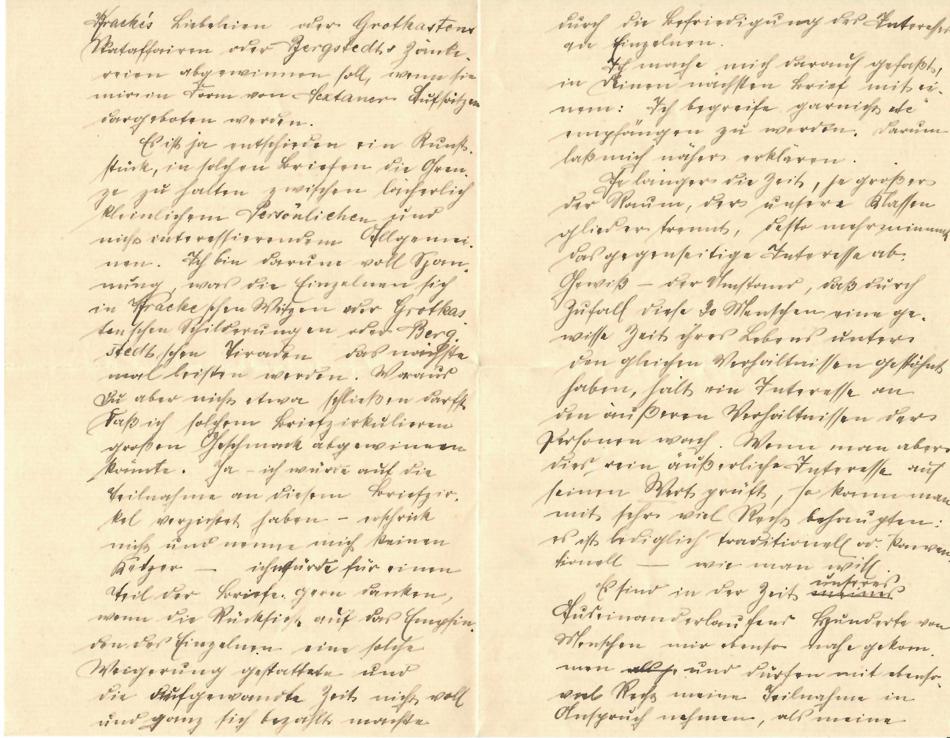 Fracke's Liebeleien oder Grotkastens
Skataffairen oder Bergstedts Zänke-
reien abgewinnen soll, wenn sie
mir in Form von Sextaner Aufsätzen
dargeboten werden.
Es ist ja entschieden ein Kunst-
stück, in solchen Briefen die Gren-
ze zu halten zwischen lächerlich
kleinlichem Persönlichen und
nicht interessierendem Allgemei-
nen. Ich bin darum voll Span-
nung, was die Einzelnen sich
in Frackeschen Witzen oder Grotkas-
tenschen Schilderungen oder Berg-
stedtschen Tiraden das nächste
mal leisten werden. Woraus
Du aber nicht etwa schließen darfst
daß ich solchem Briefzirkulieren
großen Geschmack abgewinnen
könnte. Ja – ich würde auf die
Teilnahme an diesem Briefzir-
kel verzichtet haben – erschrick
nicht und nenne mich keinen
Ketzer — ich würde für einen
Teil der Briefe gern danken,
wenn die Rücksicht auf das Empfin-
den des Einzelnen eine solche
Weigerung gestattete und
die aufgewandte Zeit nicht voll
und ganz sich bezahlt machte
durch die Befriedigung des Interesses
am Einzelnen.
Ich mache mich darauf gefaßt,
in Deinem nächsten Brief mit ei-
nem: „Ich begreife garnicht etc"
empfangen zu werden. Darum
laß mich näher erklären.
Je länger die Zeit, je größer
der Raum, der unsere Klassen
glieder trennt, desto mehr nimmt
das gegenseitige Interesse ab.
Gewiß – der Umstand, daß durch
Zufall diese 20 Menschen eine ge-
wisse Zeit ihres Lebens unter
den gleichen Verhältnissen gestöhnt
haben, hält ein Interesse an
den äußeren Verhältnissen der
Personen wach. Wenn man aber
dies rein äußerliche Interesse auf
seinen Wert prüft, so kann man
mit sehr viel Recht behaupten:
es ist lediglich traditionell od. konven-
tionell — wie man will.
Es sind in der Zeit unseres
Auseinanderlaufens Hunderte von
Menschen mir ebenso nahe gekom-
men und dürfen mit ebenso
viel Recht meine Teilnahme in
Anspruch nehmen, als meine